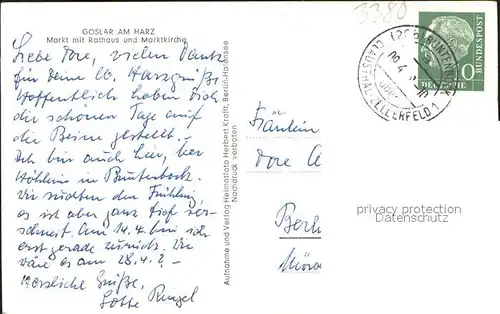 GOSLAR AM HARZ
Markt mit Rathaus und Marktkirche
Liebe Dore, vielen Dank
für Deine lb. Harzgrüße.
Hoffentlich haben Dich
die schönen Tage auf
die Beine gestellt.
Ich bin auch hier, bei
in Buntenbock.
Wir suchten den Frühling,
es ist aber ganz tief ver-
schneit. Am 14.4. bin ich
erst gerade zurück. Wie
wäre es am 28.4.? –
Herzliche Grüße,
Lotte
Aufnahme und Verlag Heimatfoto Herbert Krafft, Berlin-Halensee
Nachdruck verboten
3380
(20b) BUNTENBOCK
über
CLAUSTHAL-ZELLERFELD 1
DEUTSCHE
BUNDESPOST
10
Fräulein
Dore
Berl
privacy protection